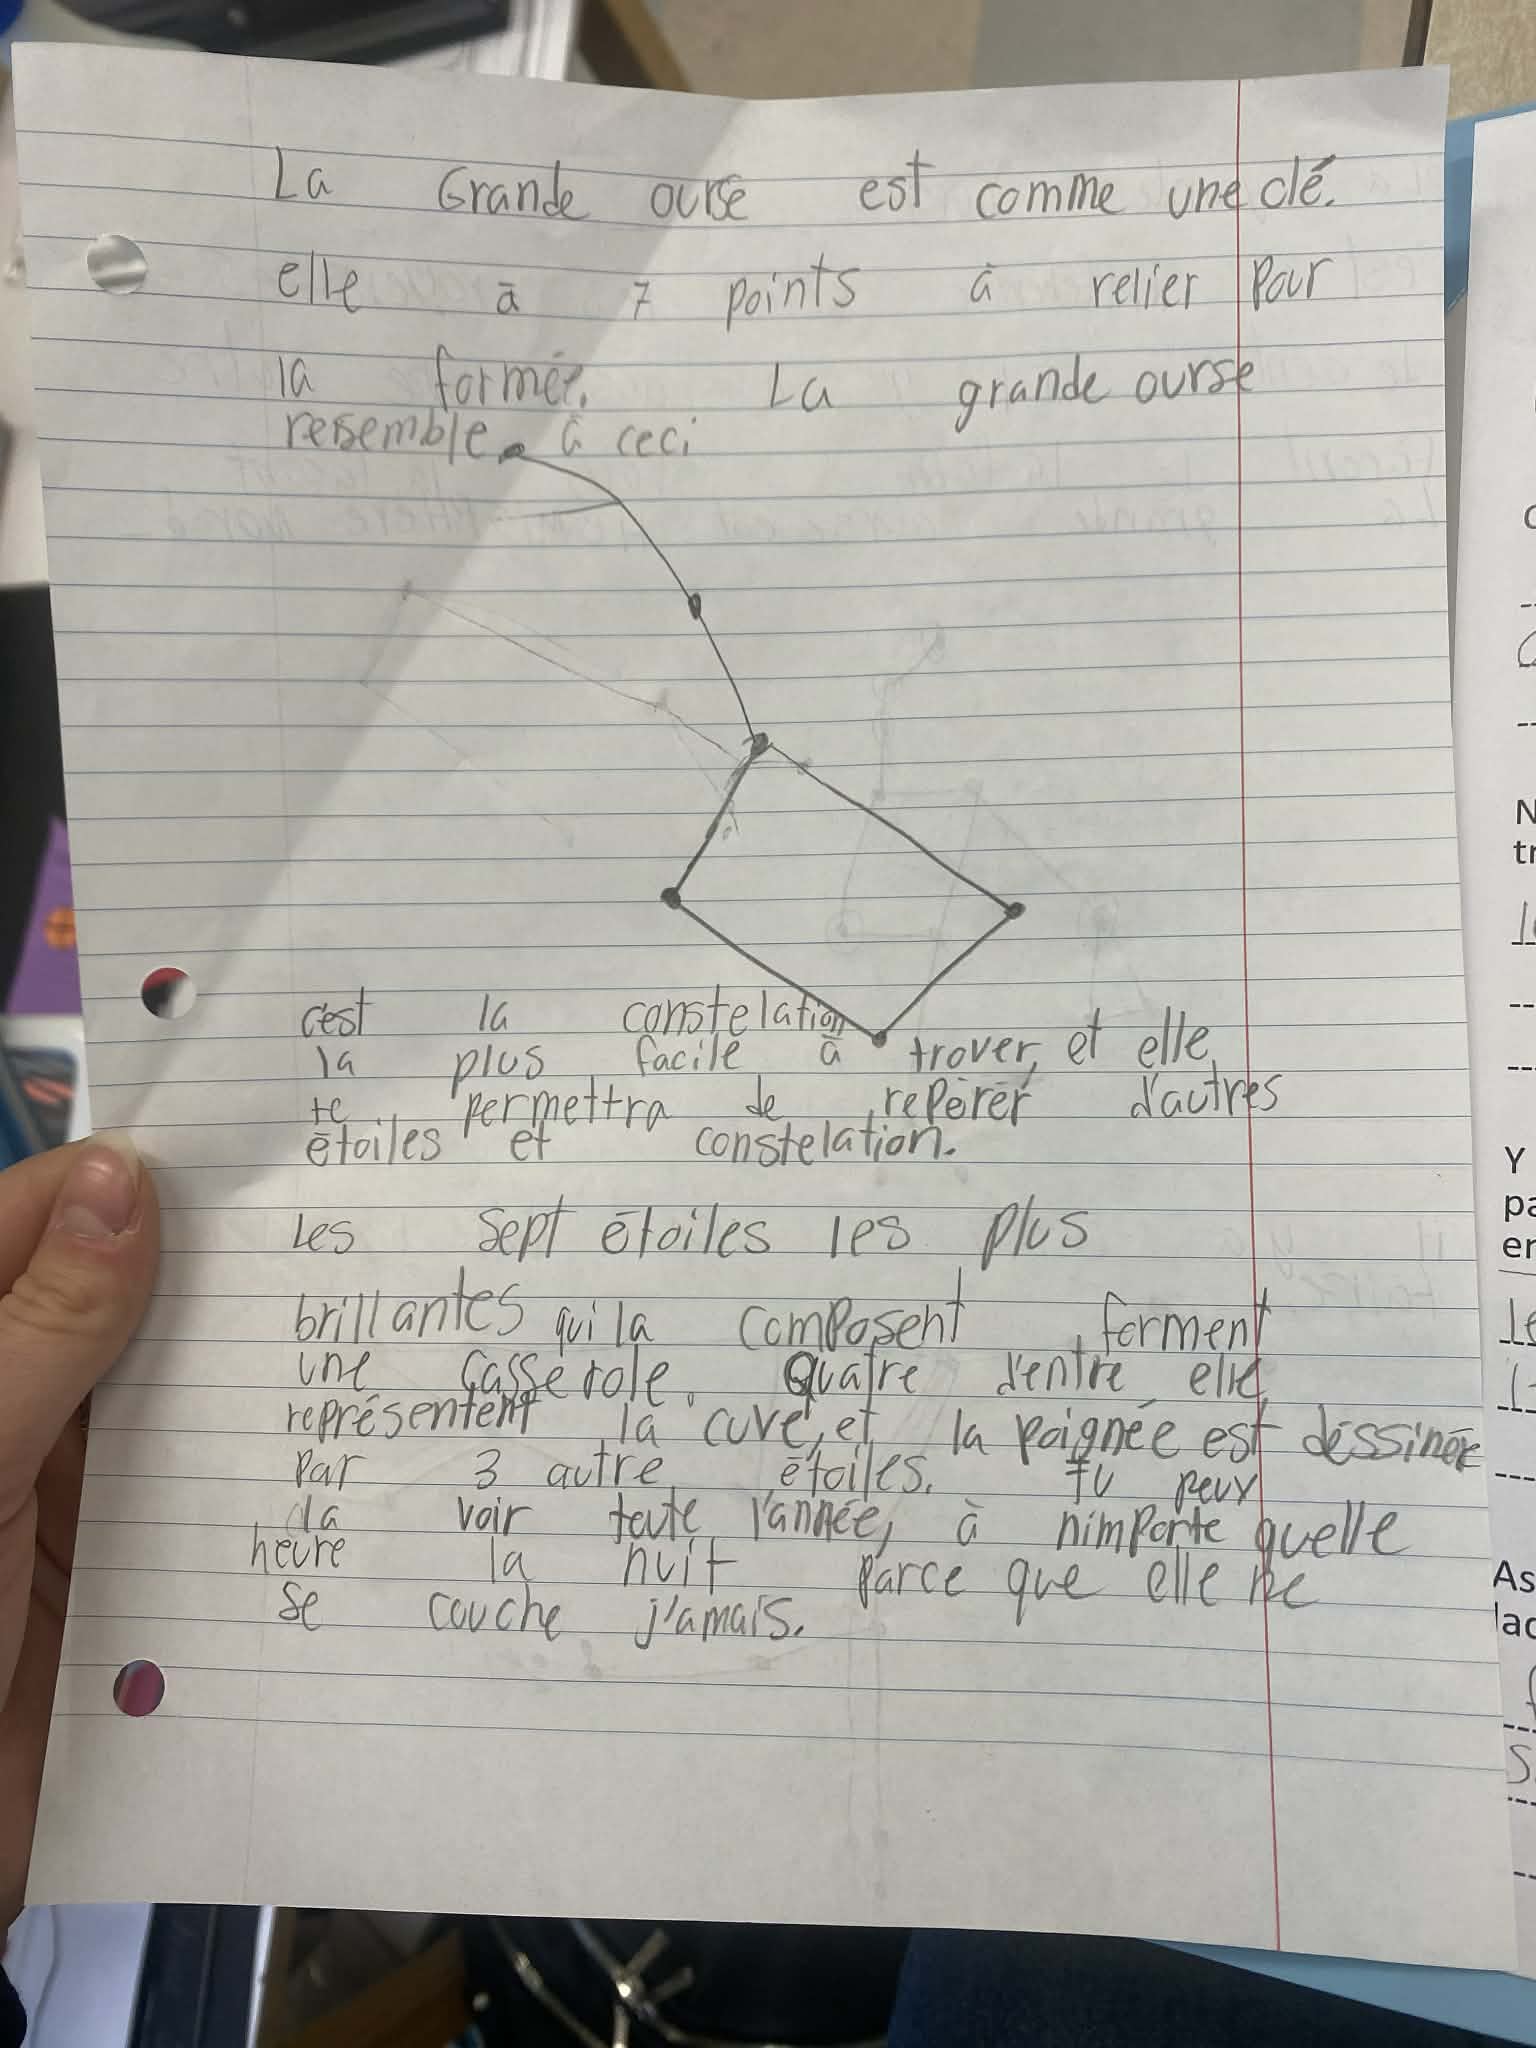 La Grande ourse est comme une clé.
elle à 7 points à relier pour
la formée. La grande ourse
resemble à ceci
c'est la constelation
la plus facile à trover, et elle
te permettra de repérér d'autres
étoiles et constelation.
Les sept étoiles les plus
brillantes qui la composent forment
une casserole. Quatre d'entre elle
représentent la cuve, et la poignée est déssinée
par 3 autre étoiles. Tu peux
la voir toute l'année, à nimporte quelle
heure la nuit parce que elle ne
se couche j'amais.
N
tr
Y
pa
er
As
lac